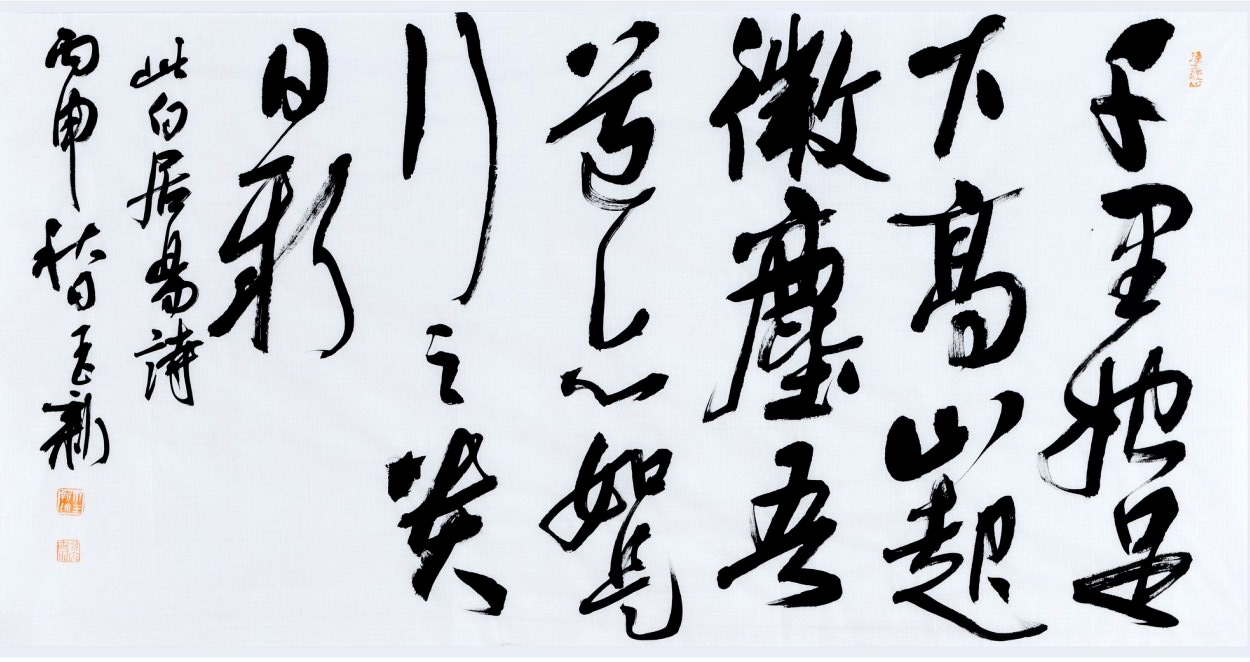 千里始足
下高山起
微塵吾
道亦如此
行之貴
日新
此白居易詩
丙申秋日